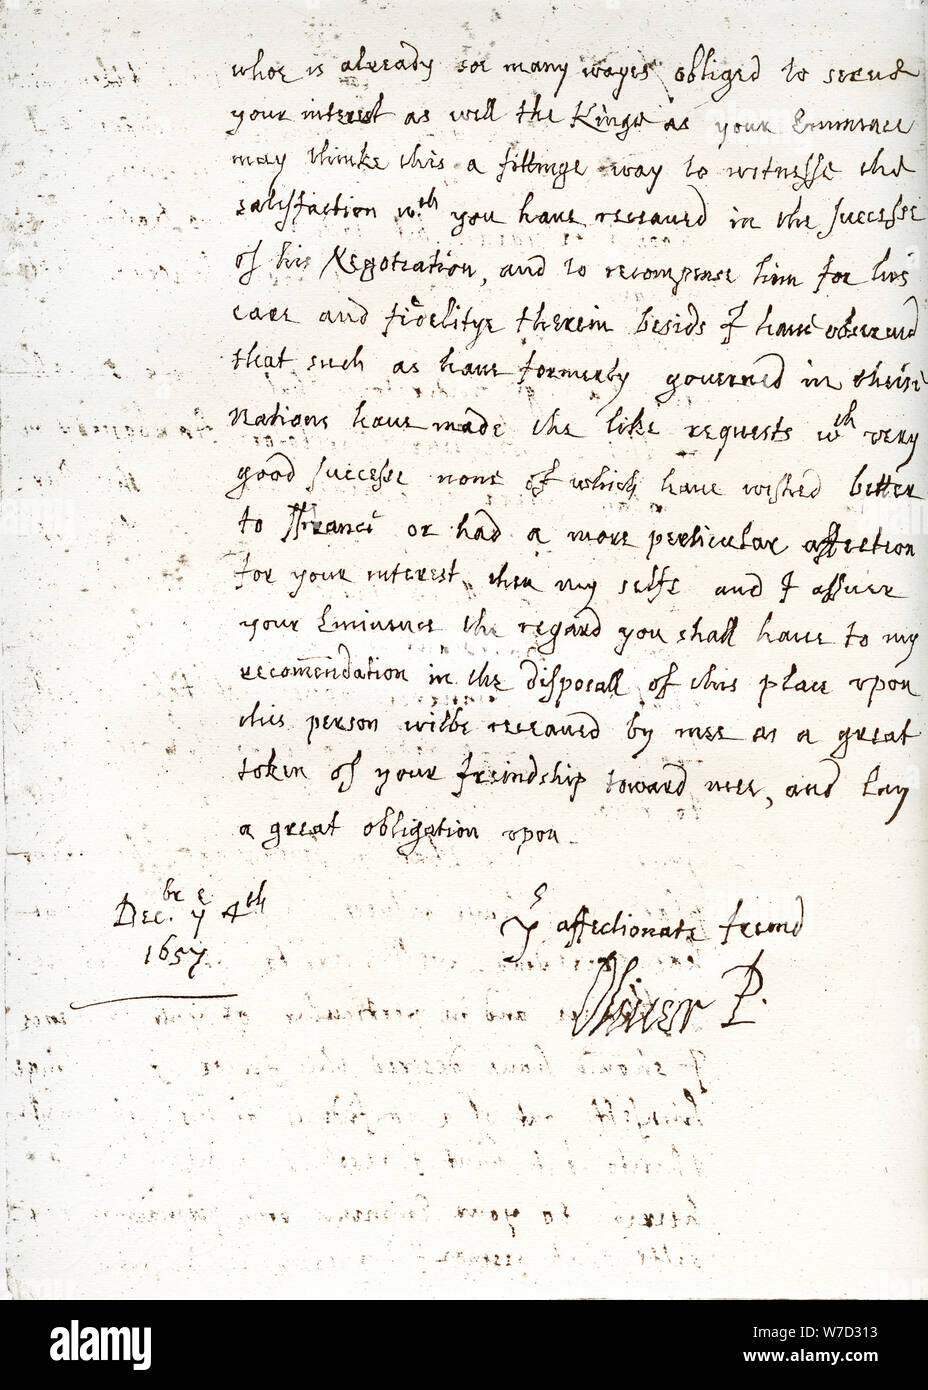 whoe is already soe many wayes obliged to serue
your interest as well the Kings as your Eminence
may thinke this a fittinge way to witnesse the
satisfaction wth you haue receaued in the successe
of his Negotiation, and to recompense him for his
care and fidelitye therein besids I haue obserued
that such as haue formerly gouerned in theise
Nations haue made the like requests wth very
good successe none of which haue wished better
to ffrance or had a more perticular affection
for your interest then my selfe and I assuer
your Eminence the regard you shall haue to my
recomendation in the disposall of this place vpon
this person wilbe receaued by mee as a great
token of your freindship toward mee, and lay
a great obligation vpon
Decbr. ye 4th
1657
yr affectionate freind
Oliver P.
alamy
Image ID: W7D313
www.alamy.com